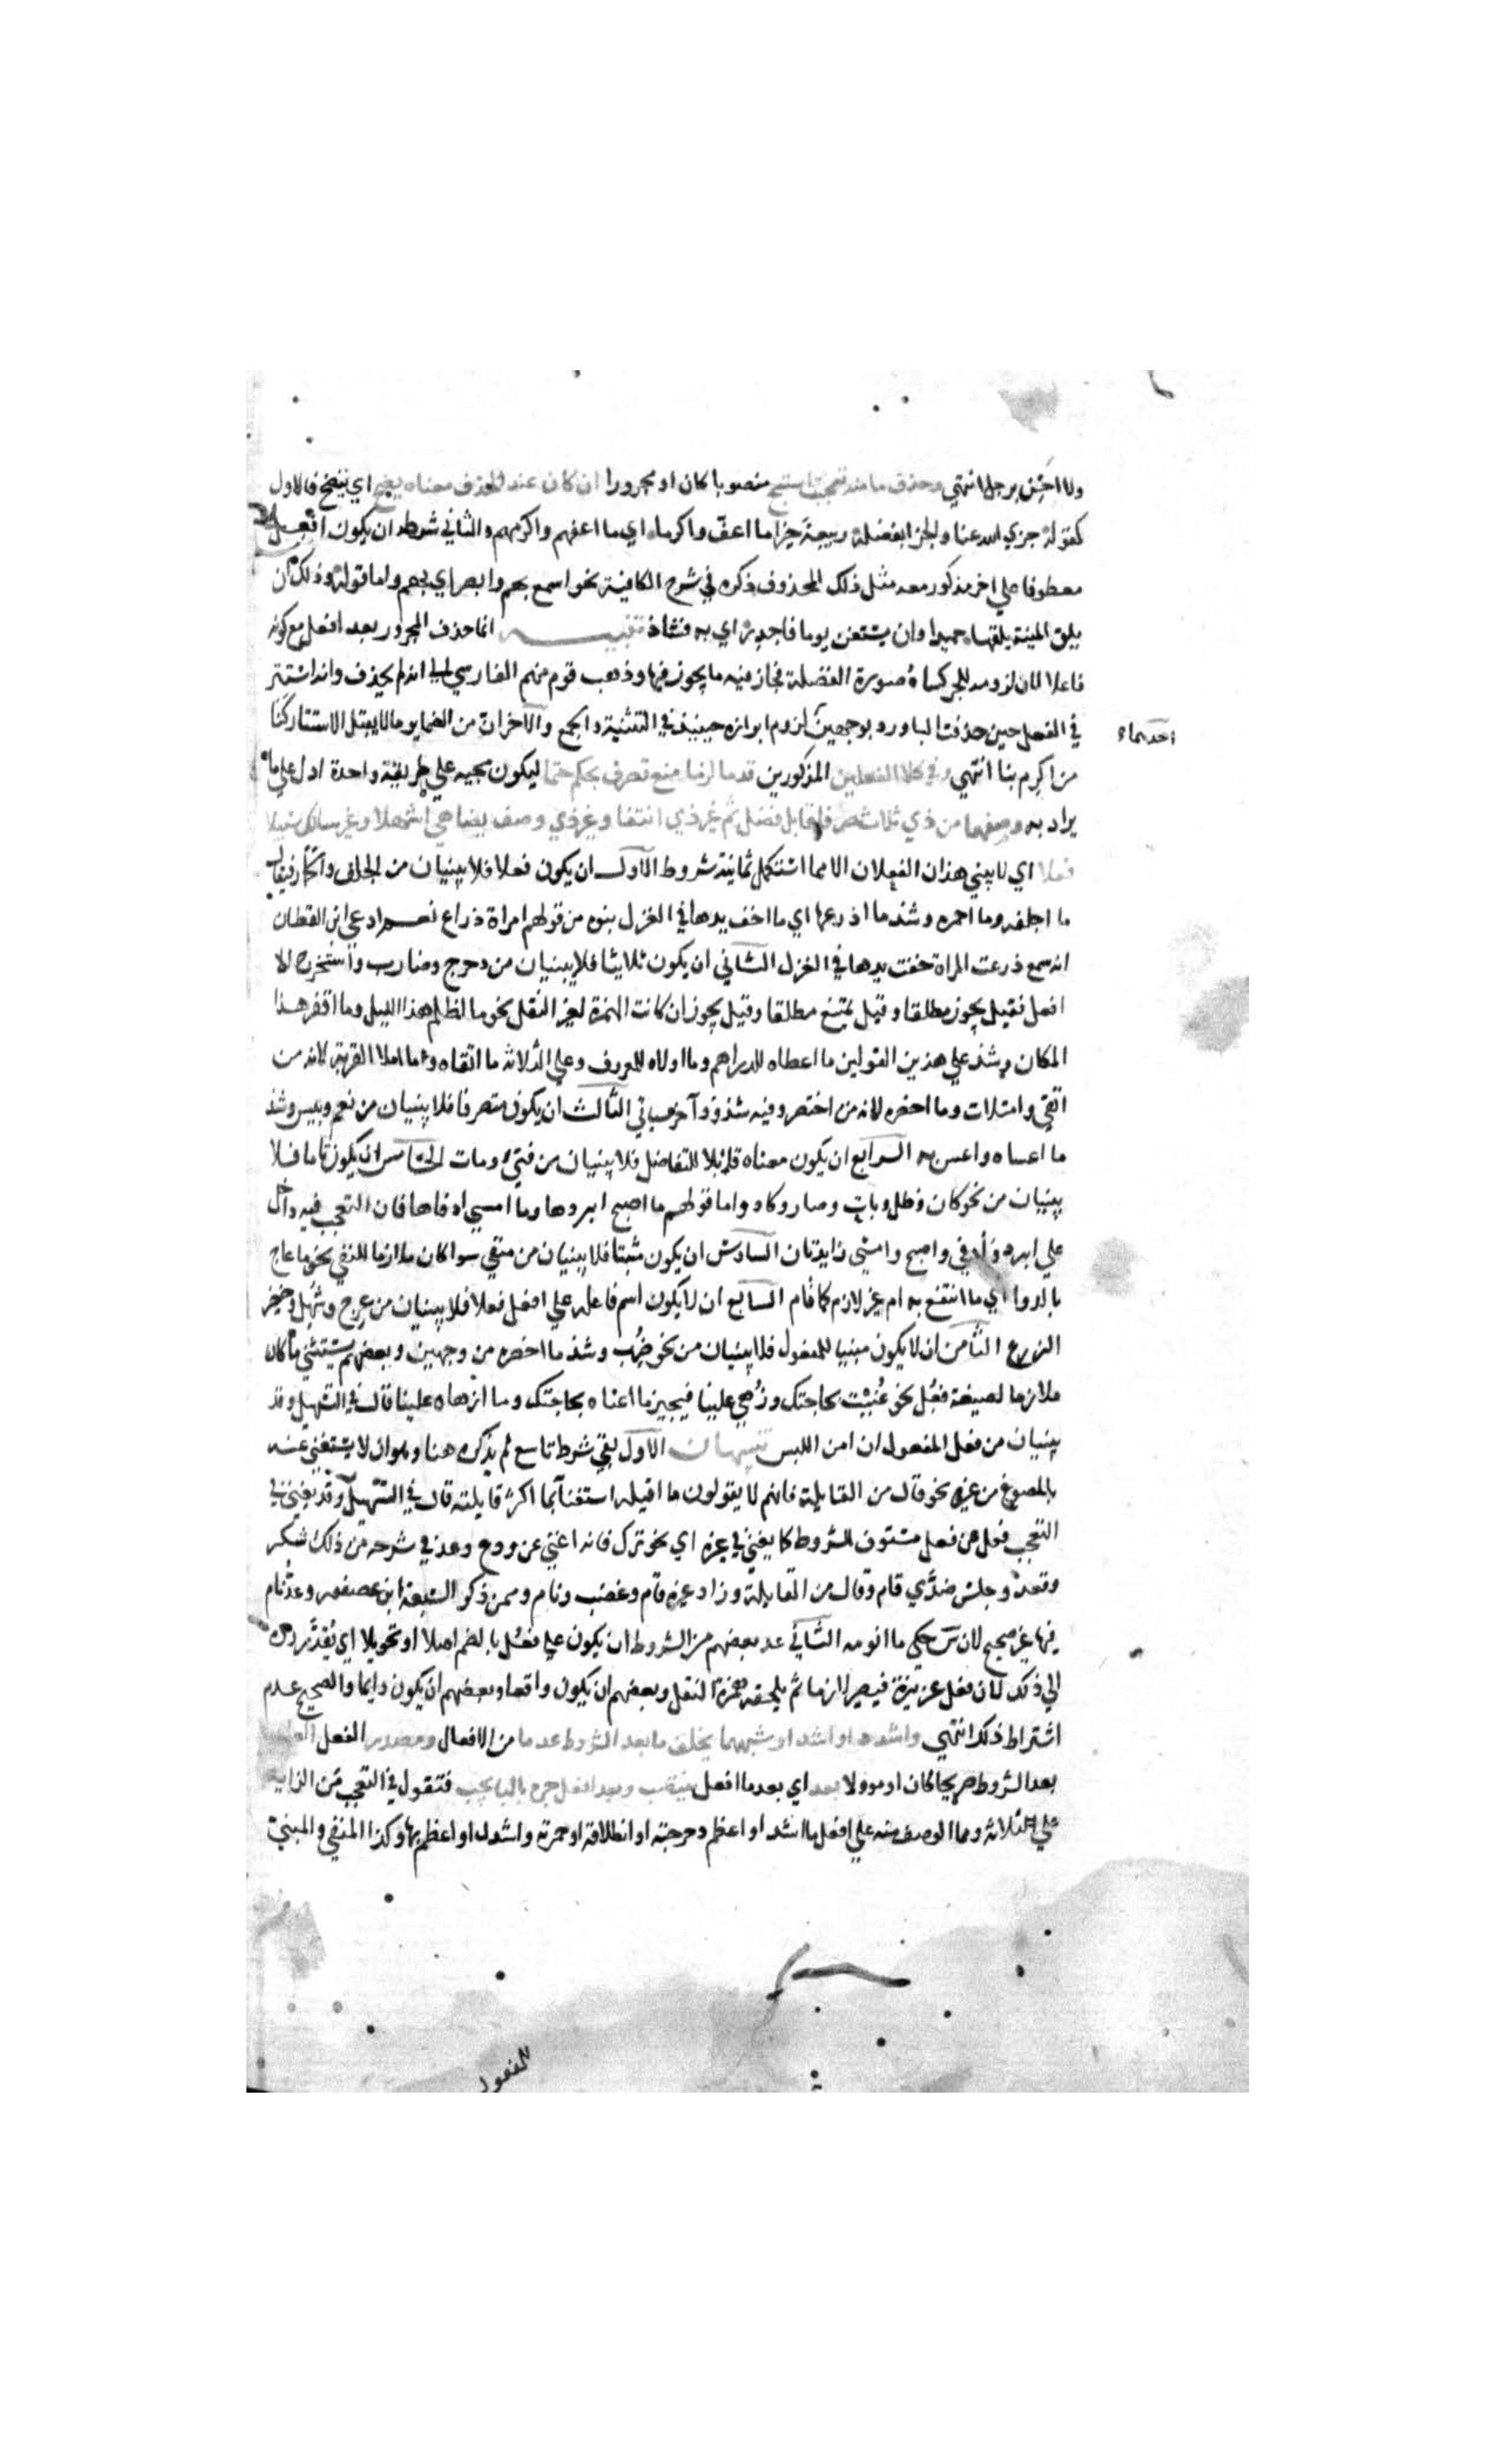 ولا احسن برجل انتهي وحذف ما منه تعجبت استبح منصوبا كان او مجرورا ان كان عند الحذف معناه يضح اي يتضح فالاول
كقوله جزي الله عنا والجزا بفضله ربيعة خيرا ما اعف واكرما اي ما اعفهم واكرمهم والثاني شرطه ان يكون افعل
معطوفا علي اخر مذكور معه مثل ذلك المحذوف ذكره في شرح الكافية نحو اسمع بهم وابصر اي بهم واما قوله فذلك ان
يلق المنية يلقها حميدا وان يستغن يوما فاجدر اي به فشاذ تنبيه انما حذف المجرور بعد افعل مع كونه
فاعلا لان لزومه للجر كساه صورة الفضلة فجاز فيه ما يجوز فيها وذهب قوم منهم الفارسي الي انه لم يحذف وانه استتر
في الفعل حين حذفت البا ورد بوجهين لزوم ابرازه حينيذ في التثنية والجمع والآخر ان من الضماير ما لا يقبل الاستتار كنا
احدهما
من اكرم بنا انتهي وفي كلا الفعلين المذكورين قدما لزما منع تصرف بحكم حتما ليكون مجيه علي طريقة واحدة ادل علي ما
يراد به وصغهما من ذي ثلاث صرفا قابل فضل تم غير ذي انتفا وغير ذي وصف يضاهي اشهلا وغير سالك سبيلا
فعلا اي لا يبني هذان الفعلان الا مما استكمل ثمانية شروط الاول ان يكون فعلا فلا يبنيان من الجلف والحمار فيقال
ما اجلفه وما احمره وشذ ما اذرعها اي ما اخف يدها في الغزل بنوه من قولهم امراة ذراع نعم ادعي ابن القطاع
انه سمع ذرعت المراة خفت يدها في الغزل الثاني ان يكون ثلاثيا فلا يبنيان من دحرج وضارب واستخرج الا
افعل فقيل يجوز مطلقا وقيل يمتنع مطلقا وقيل يجوز ان كانت الهمزة لغير النقل نحو ما اظلم هذا الليل وما اقفر هذا
المكان وشذ علي هذين القولين ما اعطاه للدراهم وما اولاه للمعروف وعلي الثلاثة ما اتقاه وما املا القربة لانه من
اتقي وامتلات وما اخصره لانه من اختصر وفيه شذوذ آخر سياتي الثالث ان يكون متصرفا فلا يبنيان من نعم وبيس وشذ
ما اعساه واعس به الرابع ان يكون معناه قابلا للتفاضل فلا يبنيان من فني ومات الخامس ان يكون تاما فلا
يبنيان من نحو كان وظل وبات وصار وكاد واما قولهم ما اصبح ابردها وما امسي ادفاها فان التعجب فيه داخل
علي ابرد وادفي واصبح وامسي زايدتان السادس ان يكون مثبتا فلا يبنيان من منفي سوا كان ملازما للنفي نحو ما عاج
بالدوا اي ما انتفع به ام غير لازم كما قام السابع ان لا يكون اسم فاعله علي افعل فعلا فلا يبنيان من عرج وشهل وخضر
الزرع الثامن ان لا يكون مبنيا للمفعول فلا يبنيان من نحو ضرب وشذ ما اخصره من وجهين وبعضهم يستثني ما كان
ملازما لصيغة فعل نحو عنيت بحاجتك وزهي علينا فيجيز ما اعناه بحاجتك وما ازهاه علينا قال في التسهيل وقد
يبنيان من فعل المفعول ان امن اللبس تنبيهان الاول بقي شرط تاسع لم يذكره هنا وهو ان لا يستغني عنه
بالمصوغ من غيره نحو قال من القايلة فانهم لا يقولون ما اقيله استغنا بما اكثر قايلته قال في التسهيل وقد يغني في
التعجب فعل عن فعل مستوف للشروط كما يغني في غيره اي نحو ترك فانه اغني عن ودع وعد في شرحه من ذلك سكر
وقعد وجلس ضدي قام وقال من القايلة وزاد غيره قام وغضب ونام وممن ذكر السبعة ابن عصفور وعد نام
فيها غير صحيح لان س حكي ما انومه الثاني عد بعضهم من الشروط ان يكون علي فعل بالضم اصلا او تحويلا اي يقدر رده
الي ذلك لان فعل غريزة فيصير لازما ثم يلحقه همزة النقل وبعضهم ان يكون واقعا وبعضهم ان يكون دايما والصحيح عدم
اشتراط ذلك انتهي واشدد او اشد او شبههما يخلف ما بعد الشروط عدما من الافعال ومصدر الفعل العادم
بعد الشروط صريحا كان او موولا بعد اي بعد ما افعل ينتصب وبعد افعل جره بالبا يجب فتقول في التعجب من الزايد
علي الثلاثة ومما الوصف منه علي افعل ما اشد او اعظم دحرجته او انطلاقه او حمرته واشدد او اعظم بها وكذا المنفي والمبني
للمفعول